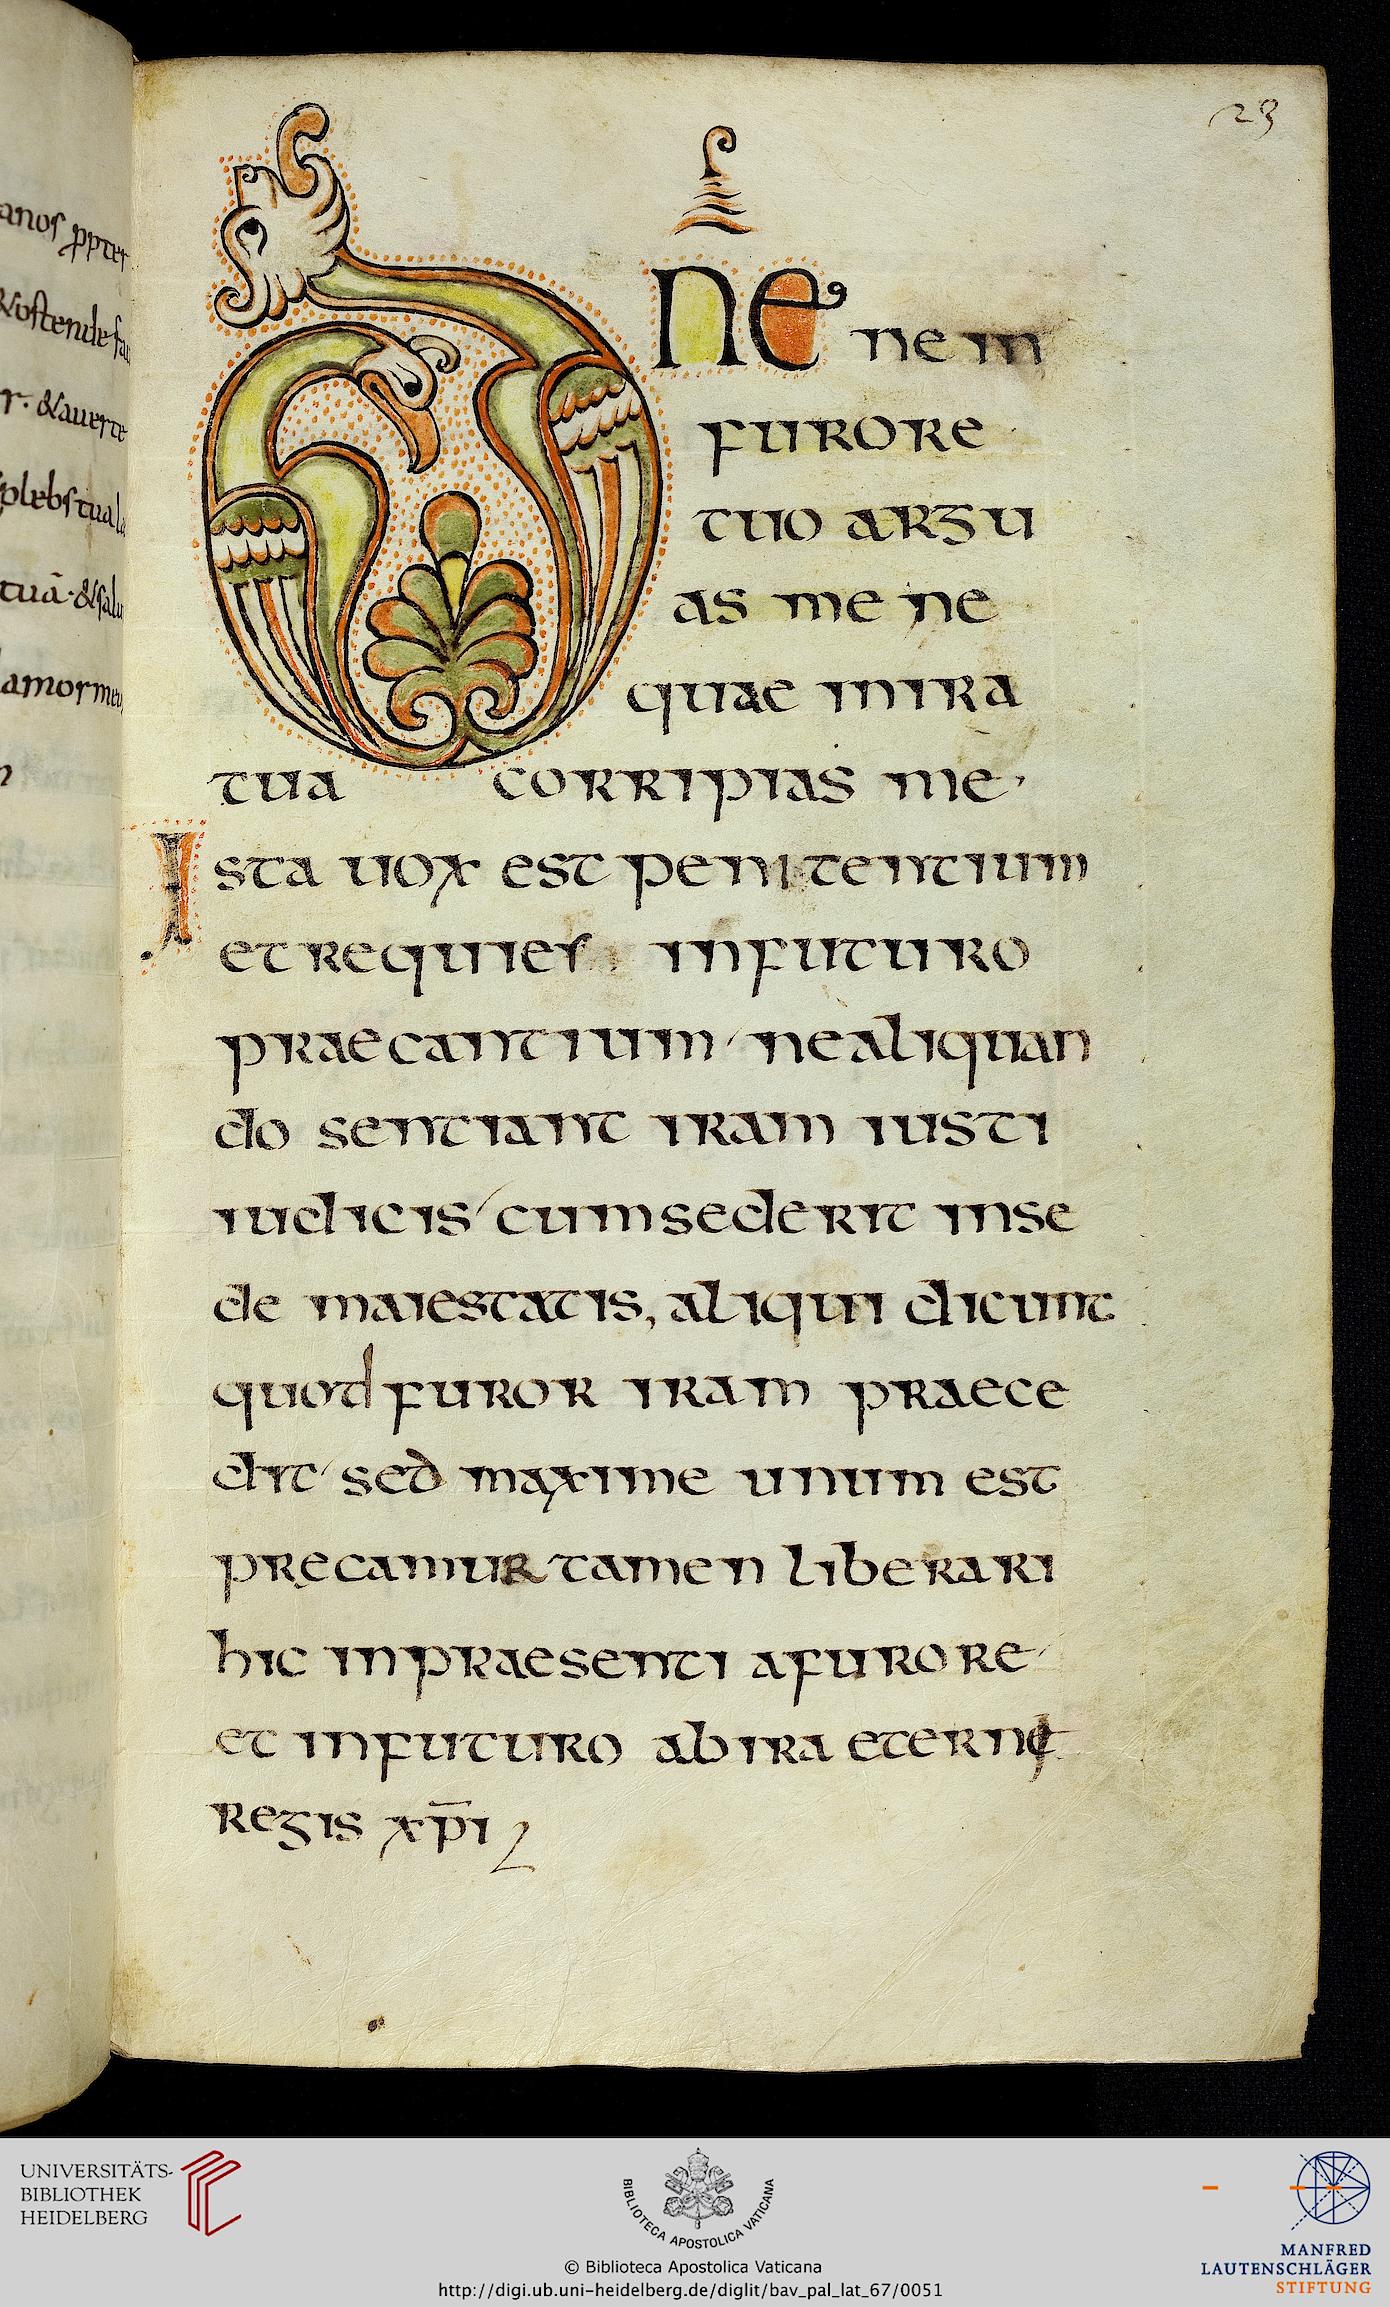 23
anos ppter
&ostende fac
r· &auerte
plebs tua l
tuā·&salu
lamor meu
n
Dne ne in
furore
tuo argu
as me ne
quae in ira
tua corripias me·
Ista uox est penitentium
et requies in futuro
praecantium, ne aliquan
do sentiant iram iusti
iudicis, cum sederit in se
de maiestatis, aliqui dicunt
quod furor iram praece
dit, sed maxime unum est
precamur tamen liberari
hic in praesenti a furore,
et in futuro ab ira eternę
regis xp̄i
UNIVERSITÄTS-
BIBLIOTHEK
HEIDELBERG
BIBLIOTECA APOSTOLICA VATICANA
© Biblioteca Apostolica Vaticana
http://digi.ub.uni-heidelberg.de/diglit/bav_pal_lat_67/0051
MANFRED
LAUTENSCHLÄGER
STIFTUNG